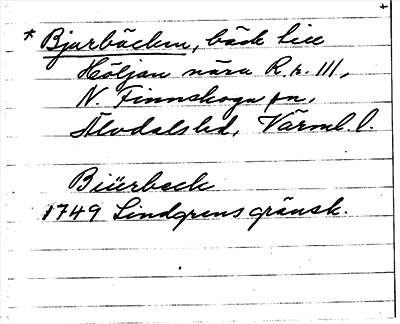 * Bjurbäcken, bäck till
Höljan nära R.r. 111,
N. Finnskoga sn,
Älvdals hd, Värml. l.
Biürbeck
1749 Lindgrens gränsk.